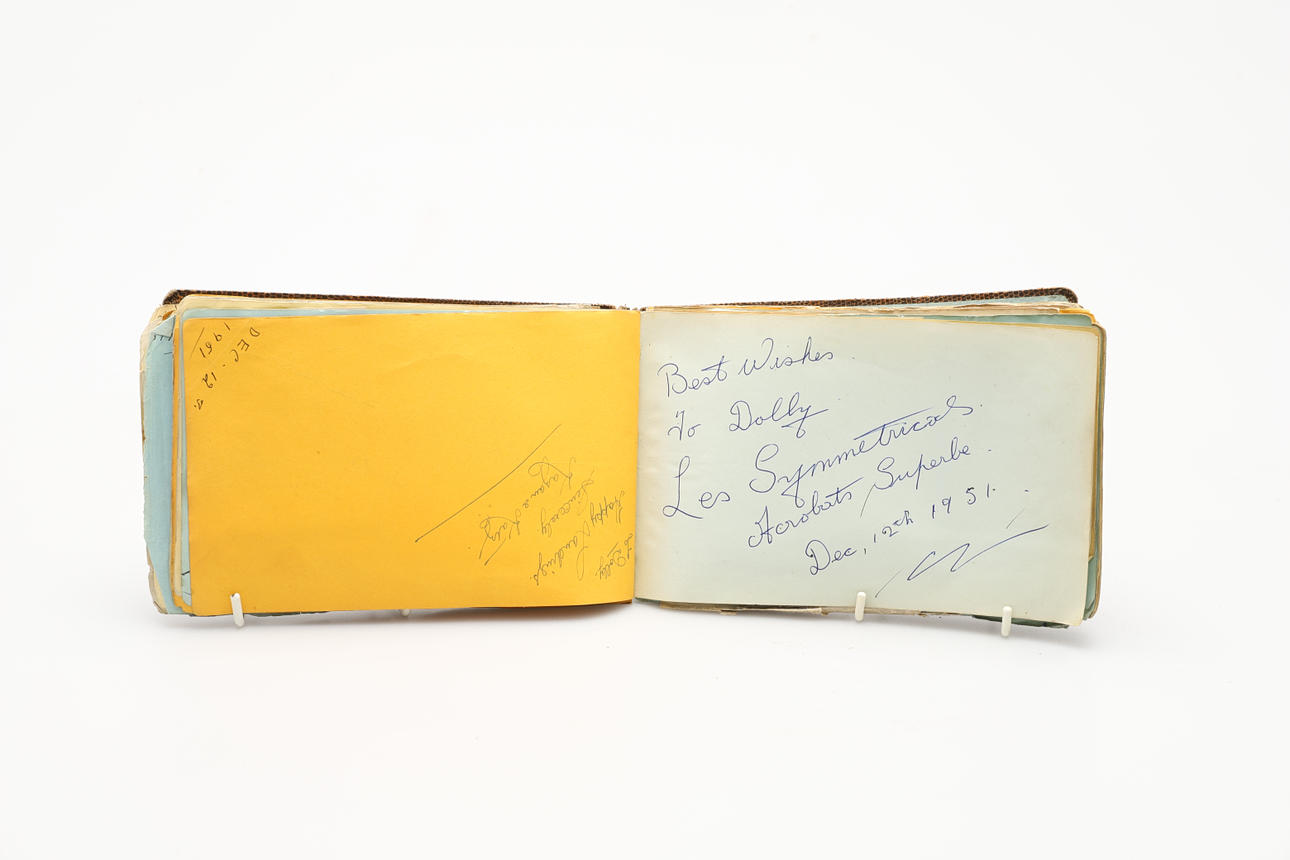 To Dolly
Happy Landings.
Sincerely
DEC. 12
1951
Best Wishes
To Dolly
Les Symmetricals.
Acrobats Superbe.
Dec, 12th 1951.